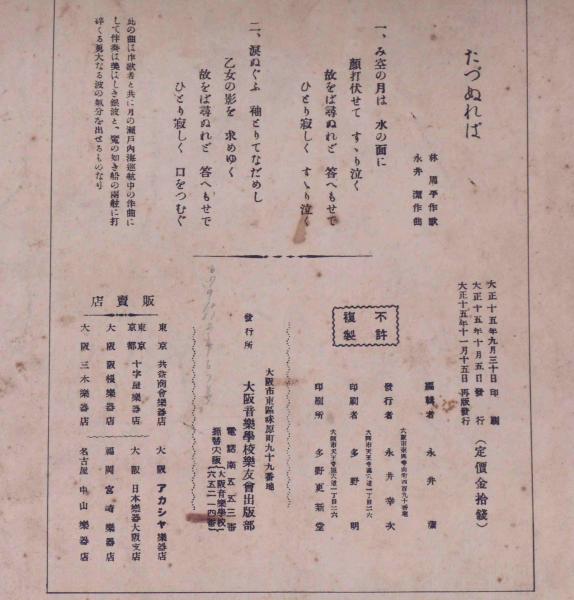 たづぬれば
林 周平 作歌
永井 潔 作曲
一、み空の月は 水の面に
顏打伏せて すゝり泣く
故をば尋ぬれど 答へもせで
ひとり寂しく すゝり泣く
二、淚ぬぐふ 袖とりてなだめし
乙女の影を 求めゆく
故をば尋ぬれど 答へもせで
ひとり寂しく 口をつむぐ
此の曲は作歌者と共に月の瀨戶內海巡航中の作曲に
して伴奏は美はしき銀波と、竜の如き船の兩舷に打
碎くる勇大なる波の氣分を出せるものなり
大正十五年九月三十日 印刷
大正十五年十月五日 發行
大正十五年十一月十五日 再版發行
(定價金拾錢)
編輯者 永井
發行者 永井幸次
印刷者 大阪市天王寺 一丁目二六 多野 明
印刷所 大阪市天王寺 一丁目二六 多野更新堂
不許
複製
大阪市東區味原町九十九番地
發行所 大阪音樂學校樂友會出版部
電話南五五三番
(大阪音樂學校)
振替大阪(六五二一四番)
販賣店
東京 共益商會樂器店
東京 京都 十字屋樂器店
大阪 阪根樂器店
大阪 三木樂器店
大阪 アカシヤ樂器店
大阪 日本樂器大阪支店
福岡 宮崎樂器店
名古屋 中山樂器店